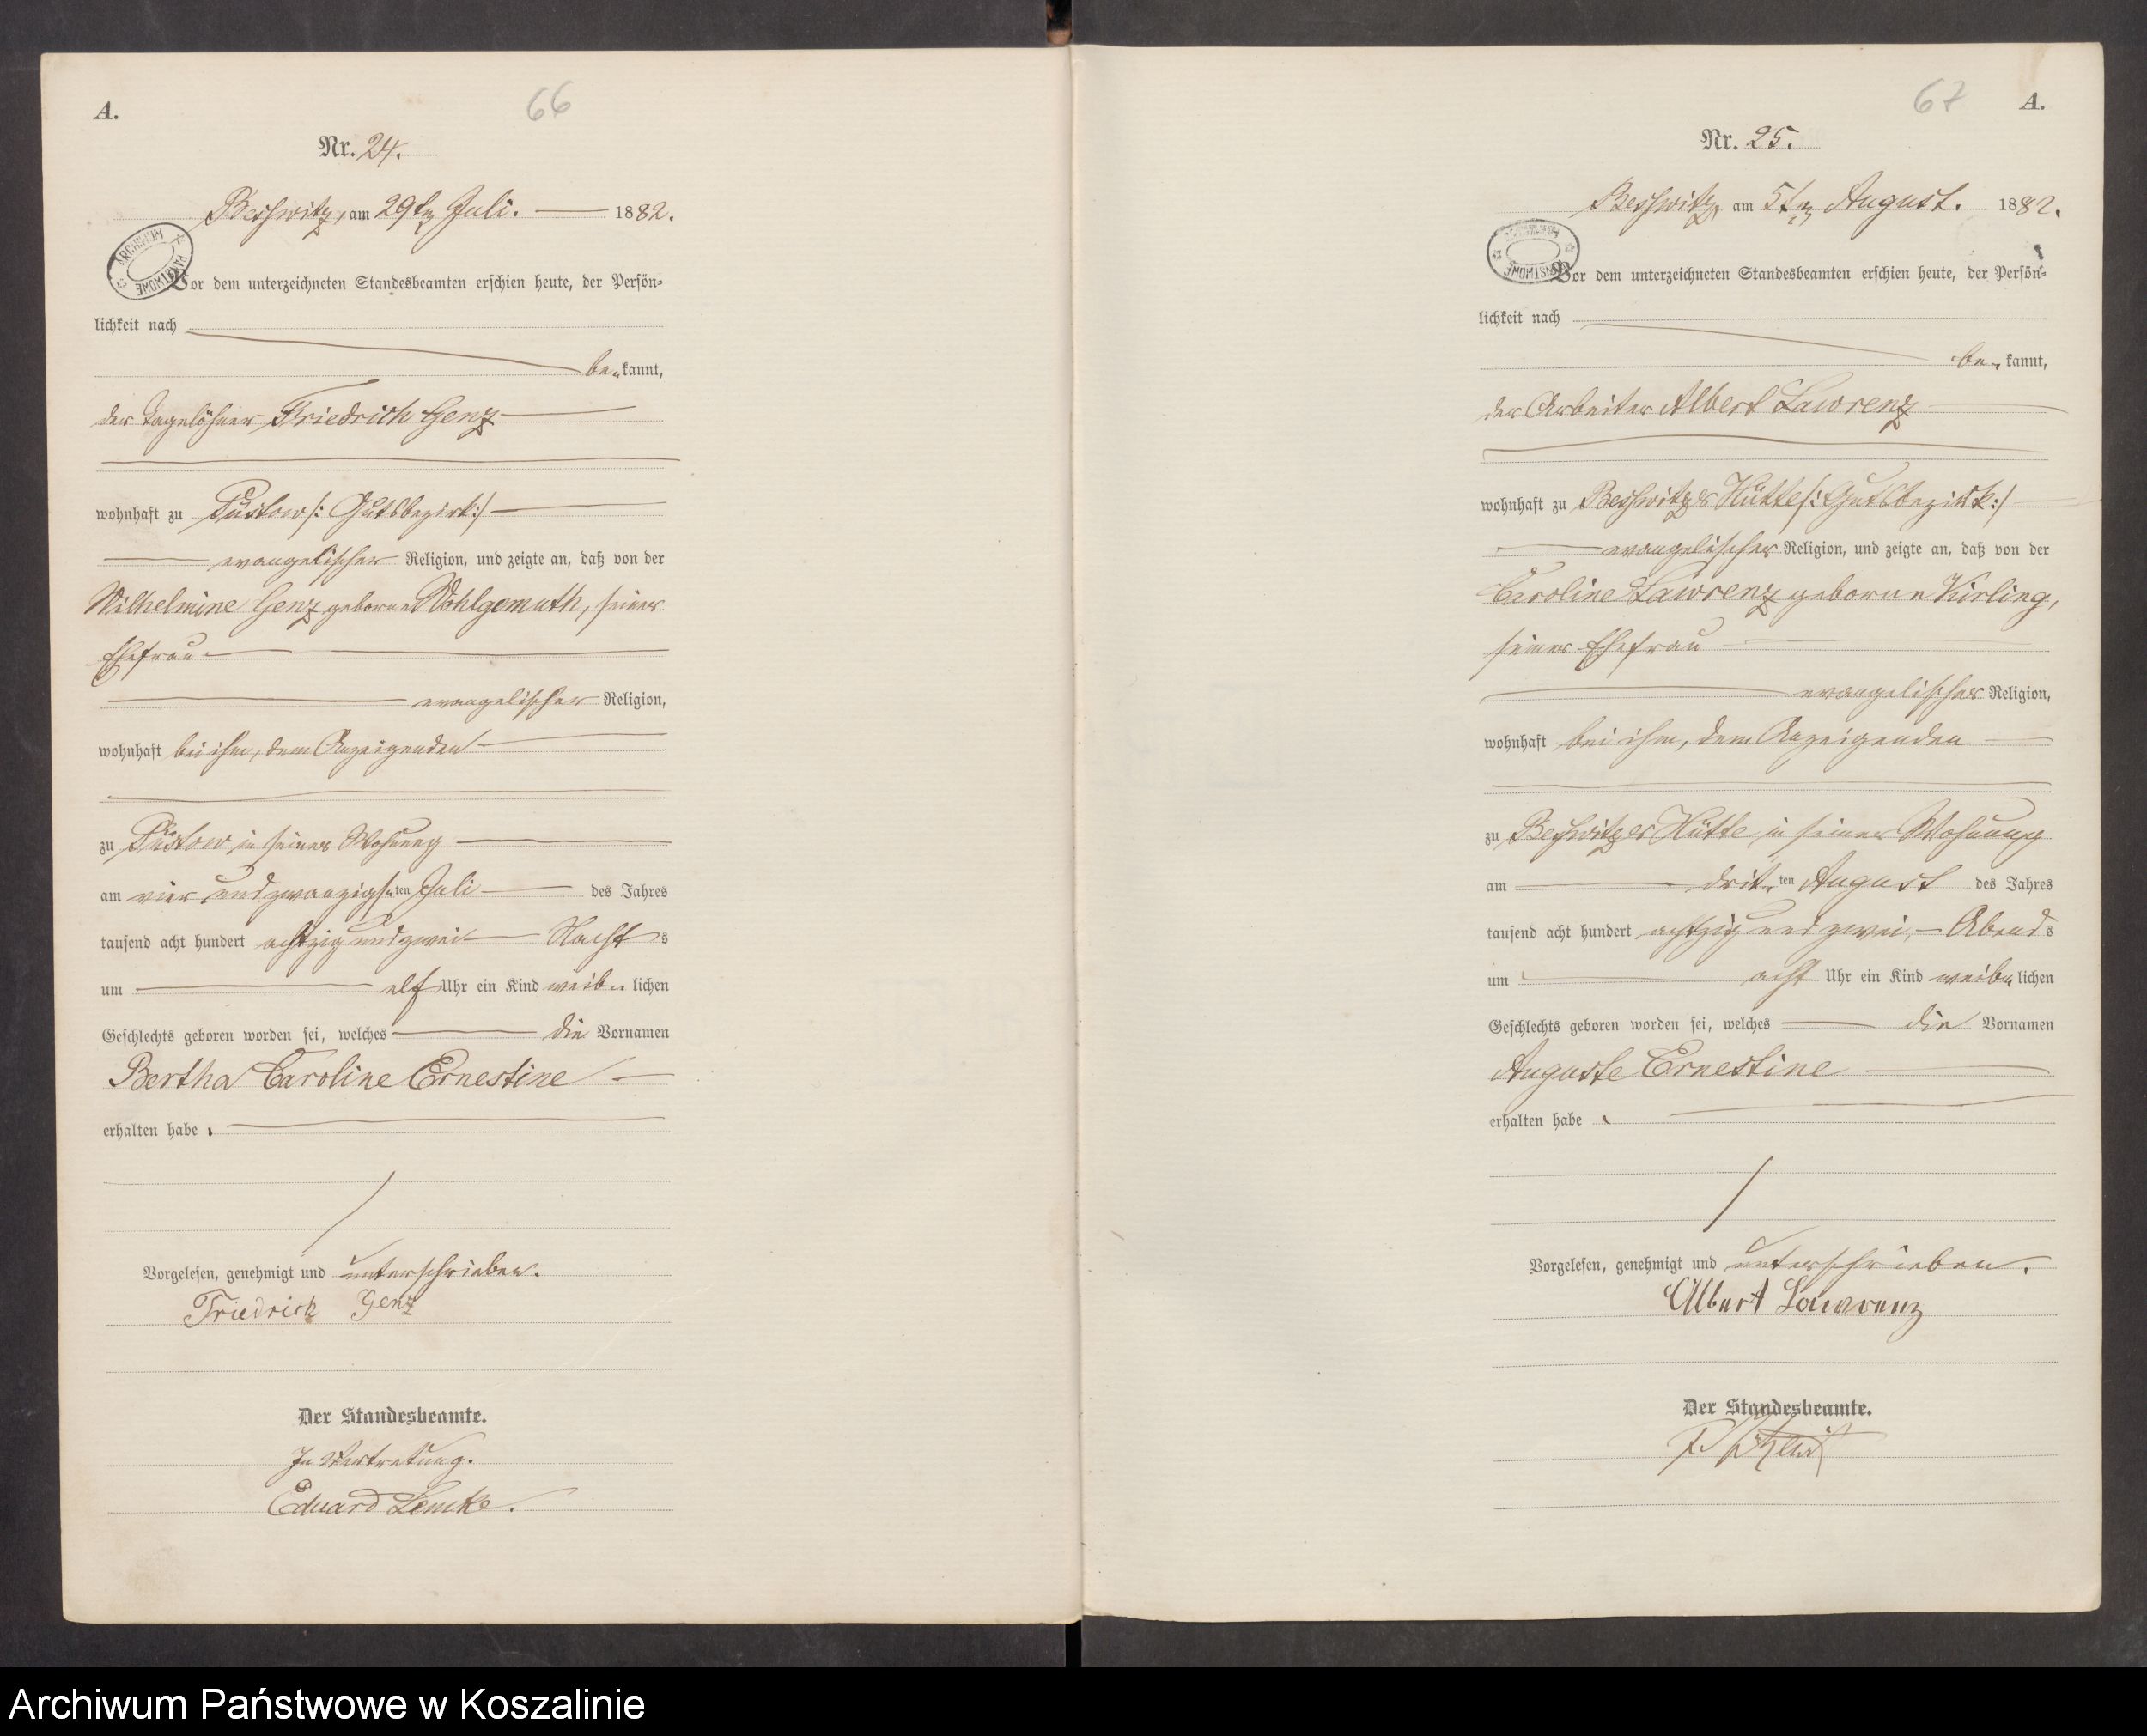 66
A.
Nr. 24.
Beßwitz, am 29ten Juli. 1882.
ARCHIWUM PAŃSTWOWE
Vor dem unterzeichneten Standesbeamten erschien heute, der Persön-
lichkeit nach
bekannt,
der Tagelöhner Friedrich Genz
wohnhaft zu Püstow /: Gutsbezirk :/
evangelischer Religion, und zeigte an, daß von der
Wilhelmine Genz geborne Wohlgemuth, seiner
Ehefrau
evangelischer Religion,
wohnhaft bei ihm, dem Anzeigenden
zu Püstow in seiner Wohnung
am vier und zwanzigsten Juli des Jahres
tausend acht hundert achtzig und zwei Nachts
um elf Uhr ein Kind weiblichen
Geschlechts geboren worden sei, welches die Vornamen
Bertha Caroline Ernestine
erhalten habe.
Vorgelesen, genehmigt und unterschrieben.
Friedrich Genz
Der Standesbeamte.
In Vertretung.
Eduard Lemke.
67
A.
Nr. 25.
Beßwitz, am 5ten August. 1882.
Vor dem unterzeichneten Standesbeamten erschien heute, der Persön-
lichkeit nach
bekannt,
der Arbeiter Albert Lawrenz
wohnhaft zu Beßwitzer Hütte /: Gutsbezirk :/
evangelischer Religion, und zeigte an, daß von der
Caroline Lawrenz geborne Kirling,
seiner Ehefrau
evangelischer Religion,
wohnhaft bei ihm, dem Anzeigenden
zu Beßwitzer Hütte in seiner Wohnung
am dritten August des Jahres
tausend acht hundert achtzig und zwei, Abends
um acht Uhr ein Kind weiblichen
Geschlechts geboren worden sei, welches die Vornamen
Auguste Ernestine
erhalten habe.
Vorgelesen, genehmigt und unterschrieben.
Albert Lawrenz
Der Standesbeamte.
Archiwum Państwowe w Koszalinie